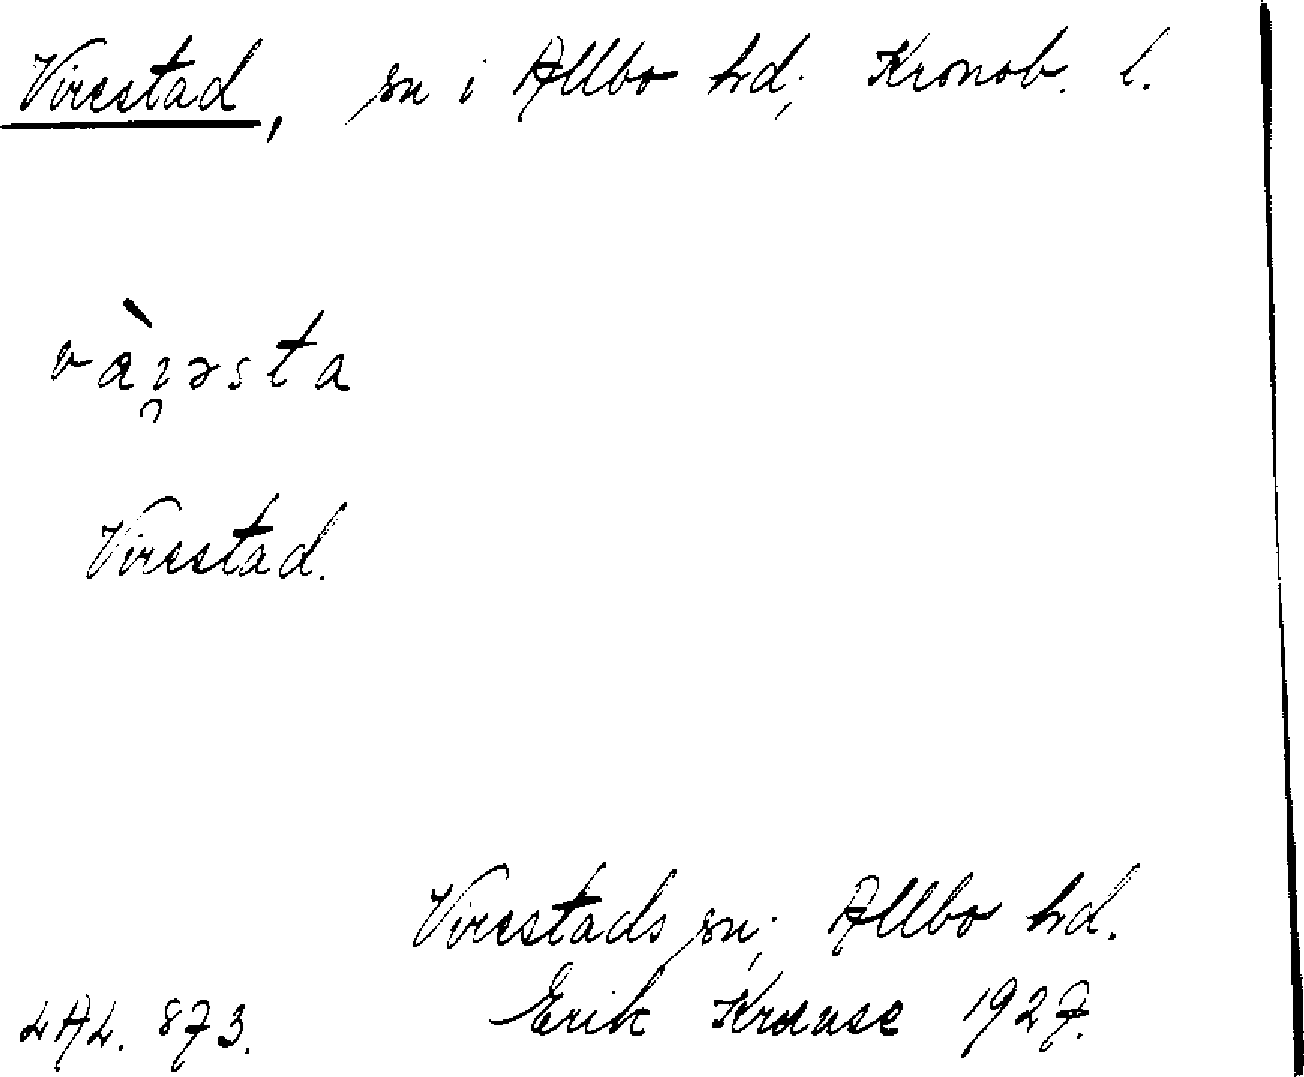 Virestad, sn i Allbo hd; Kronob. l.
Virestad.
Virestads sn; Allbo hd.
LAL. 873. Erik Krause 1927.